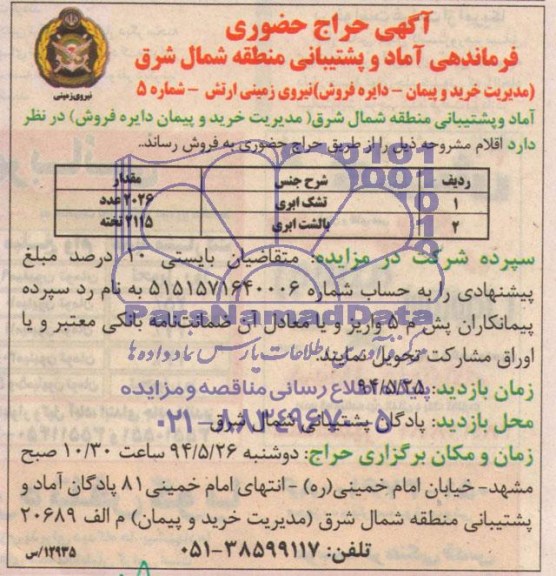 آگهی حراج حضوری
فرماندهی آماد و پشتیبانی منطقه شمال شرق
(مدیریت خرید و پیمان - دایره فروش)نیروی زمینی ارتش - شماره ۵
نیروی زمینی
آماد وپشتیبانی منطقه شمال شرق( مدیریت خرید و پیمان دایره فروش) در نظر
دارد اقلام مشروحه ذیل را از طریق حراج حضوری به فروش رساند.
ردیف شرح جنس مقدار
۱ تشک ابری ۲۰۲۶ عدد
۲ بالشت ابری ۲۱۱۵ تخته
سپرده شرکت در مزایده: متقاضیان بایستی ۱۰ درصد مبلغ
پیشنهادی را به حساب شماره ۵۱۵۱۵۷۱۶۴۰۰۰۶ به نام رد سپرده
پیمانکاران پش م ۵ واریز و یا معادل آن ضمانتنامه بانکی معتبر و یا
اوراق مشارکت تحویل نمایند.
زمان بازدید: ۹۴/۵/۲۵
محل بازدید: پادگان پشتیبانی شمال شرق
زمان و مکان برگزاری حراج: دوشنبه ۹۴/۵/۲۶ ساعت ۱۰/۳۰ صبح
مشهد- خیابان امام خمینی(ره) - انتهای امام خمینی ۸۱ پادگان آماد و
پشتیبانی منطقه شمال شرق (مدیریت خرید و پیمان) م الف ۲۰۶۸۹
تلفن: ۳۸۵۹۹۱۱۷-۰۵۱
۱۲۹۳۵/س
ParsNamadData
مرکز فرآوری اطلاعات پارس نماد داده ها
پایگاه اطلاع رسانی مناقصه و مزایده
۰۲۱-۸۸۳۴۹۶۷۰-۵